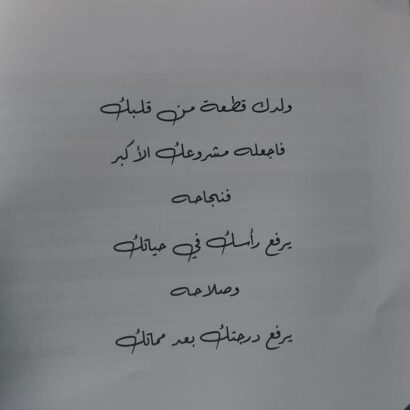 ولدك قطعة من قلبك
فاجعله مشروعك الأكبر
فنجاحه
يرفع رأسك في حياتك
وصلاحه
يرفع درجتك بعد مماتك